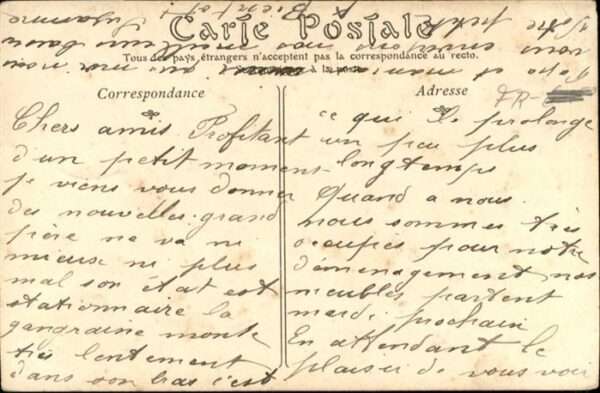 Carte Postale
Tous les pays étrangers n'acceptent pas la correspondance au recto.
Correspondance
Chers amis Profitant
d'un petit moment
je viens vous donner
des nouvelles. grand
père ne va ni
mieux ni plus
mal son état est
stationnaire la
gangraine monte
très lentement
dans son bras c'est
Adresse
FR-
ce qui se prolonge
un peu plus
longtemps
Quand a nous
nous sommes très
occupés pour notre
déménagement nos
meubles partent
mardi prochain
En attendant le
plaisir de vous voir
vous
Votre petite
Suzanne
Bientot